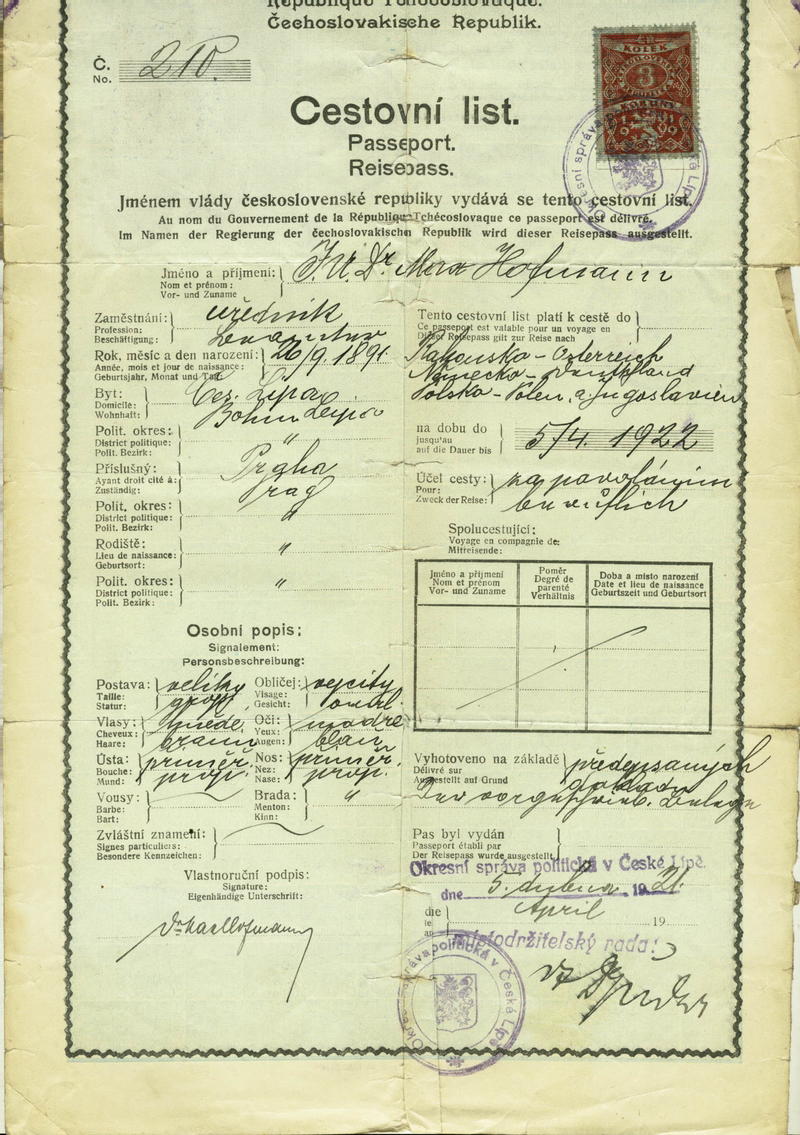 République Tchécoslovaque.
Čechoslovakische Republik.
Č.
No.
210.
KOLEK
3
KORUNY
1919
Cestovní list.
Passeport.
Reisepass.
Jménem vlády československé republiky vydává se tento cestovní list.
Au nom du Gouvernement de la République Tchécoslovaque ce passeport est délivré.
Im Namen der Regierung der čechoslovakischen Republik wird dieser Reisepass ausgestellt.
Jméno a příjmení: J.U.Dr Max Hofmann
Nom et prénom:
Vor- und Zuname
Zaměstnání: úředník
Profession:
Beschäftigung: Beamter
Rok, měsíc a den narození: 26/9. 1891
Année, mois et jour de naissance:
Geburtsjahr, Monat und Tag
Byt: Čes. Lípa
Domicile:
Wohnhaft: Böhm Leipa
Polit. okres: "
District politique:
Polit. Bezirk:
Příslušný: Praha
Ayant droit cité à:
Zuständig: Prag
Polit. okres: "
District politique:
Polit. Bezirk:
Rodiště: "
Lieu de naissance:
Geburtsort:
Polit. okres: "
District politique:
Polit. Bezirk:
Osobní popis:
Signalement:
Personsbeschreibung:
Postava: veliký
Taille:
Statur: gross
Obličej: vejčitý
Visage:
Gesicht: oval
Vlasy: hnědé
Cheveux:
Haare: braun
Oči: modré
Yeux:
Augen: blau
Ústa: přiměř.
Bouche:
Mund: prop.
Nos: přiměř.
Nez:
Nase: prop.
Vousy:
Barbe:
Bart:
Brada: "
Menton:
Kinn:
Zvláštní znamení:
Signes particuliers:
Besondere Kennzeichen:
Vlastnoruční podpis:
Signature:
Eigenhändige Unterschrift:
Dr Max Hofmann
Tento cestovní list platí k cestě do
Ce passeport est valable pour un voyage en
Dieser Reisepass gilt zur Reise nach
Rakouska - Österreich
Německo - Deutschland
Polska - Polen, a Jugoslavien
na dobu do
jusqu'au
auf die Dauer bis
5/4. 1922
Účel cesty: za povoláním
Pour:
Zweck der Reise: beruflich
Spolucestující:
Voyage en compagnie de:
Mitreisende:
Jméno a příjmení
Nom et prénom
Vor- und Zuname
Poměr
Degré de
parenté
Verhältnis
Doba a místo narození
Date et lieu de naissance
Geburtszeit und Geburtsort
Vyhotoveno na základě předepsaných
Délivré sur
Ausgestellt auf Grund dokladů
Der vorgeschrieb. Belege
Pas byl vydán
Passeport établi par
Der Reisepass wurde ausgestellt
Okresní správa politická v České Lípě.
dne 5. dubna 1921.
dne
le
an
April
19
místodržitelský rada:
Okresní správa politická v České Lípě